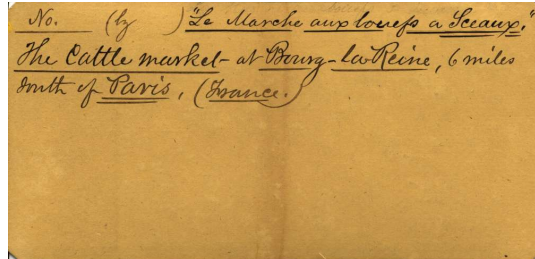 No. (by ) "Le Marche aux boeufs a Sceaux."
The Cattle market - at Bourg-la Reine, 6 miles
south of Paris, (France.)